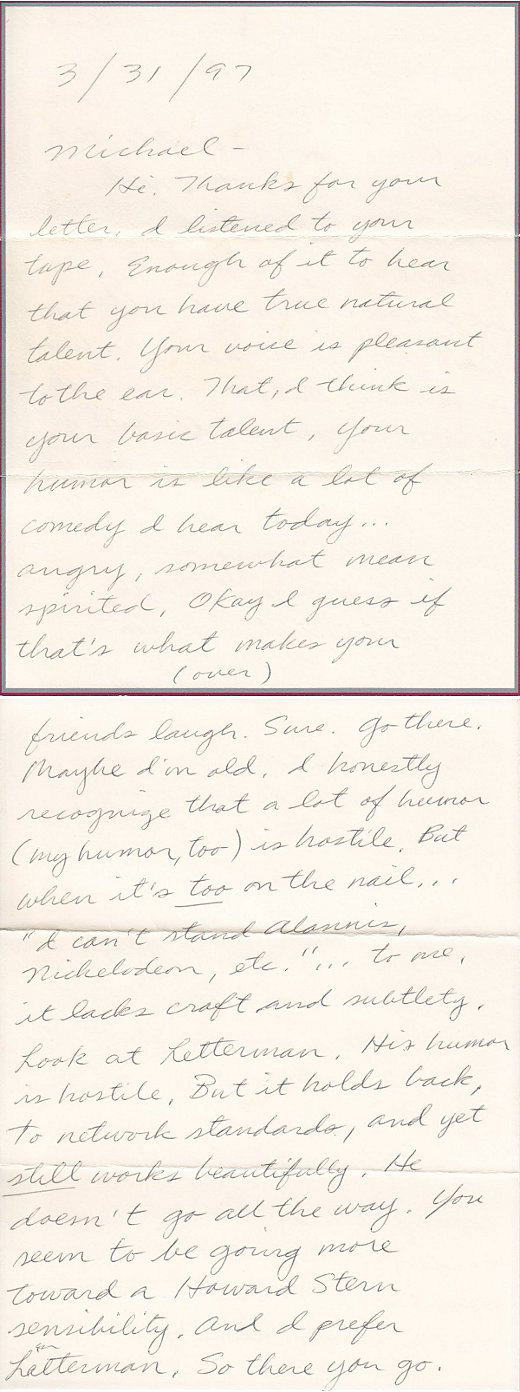 3/31/97
Michael -
Hi. Thanks for your
letter. I listened to your
tape. Enough of it to hear
that you have true natural
talent. Your voice is pleasant
to the ear. That, I think is
your basic talent, your
humor is like a lot of
comedy I hear today...
angry, somewhat mean
spirited. Okay I guess if
that's what makes your
(over)
friends laugh. Sure. Go there.
Maybe I'm old. I honestly
recognize that a lot of humor
(my humor, too) is hostile. But
when it's too on the nail...
"I can't stand Alannis,
Nickelodeon, etc."... to me,
it lacks craft and subtlety.
Look at Letterman. His humor
is hostile. But it holds back,
to network standards, and yet
still works beautifully. He
doesn't go all the way. You
seem to be going more
toward a Howard Stern
sensibility. And I prefer
Latterman. So there you go.